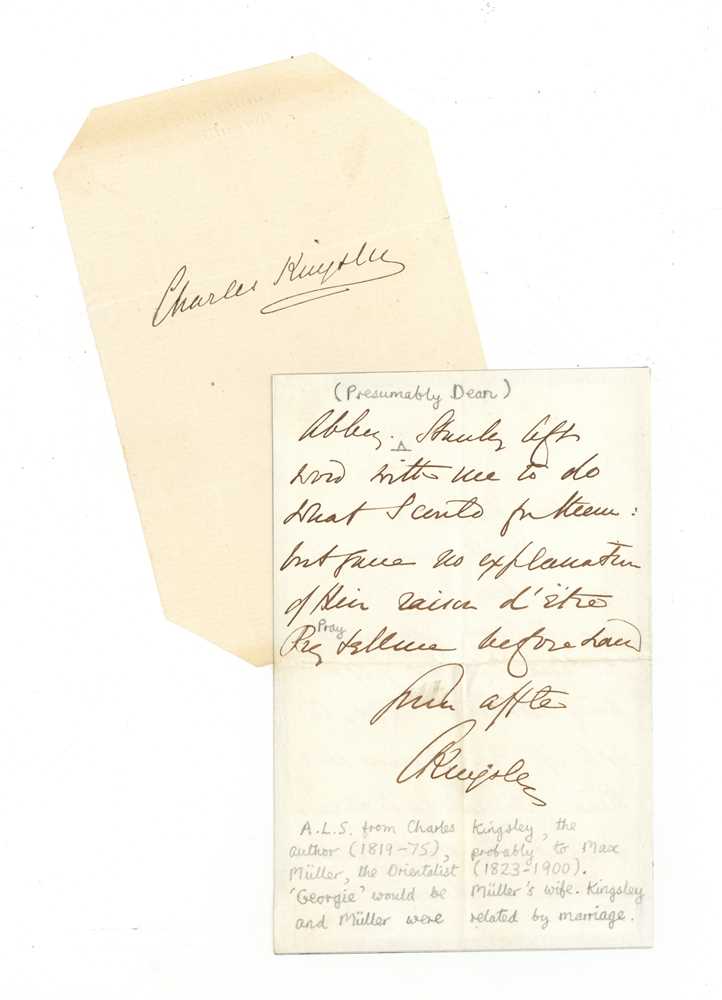 Charles Kingsley
(Presumably Dean)
Abbey. Stanley left
word with me to do
what I could for them:
but gave no explanation
of their raison d'être
Pray
Pray tell me beforehand
Your affte
CKingsley
A.L.S. from Charles Kingsley, the
author (1819-75), probably to Max
Müller, the Orientalist (1823-1900).
'Georgie' would be Müller's wife. Kingsley
and Müller were related by marriage.